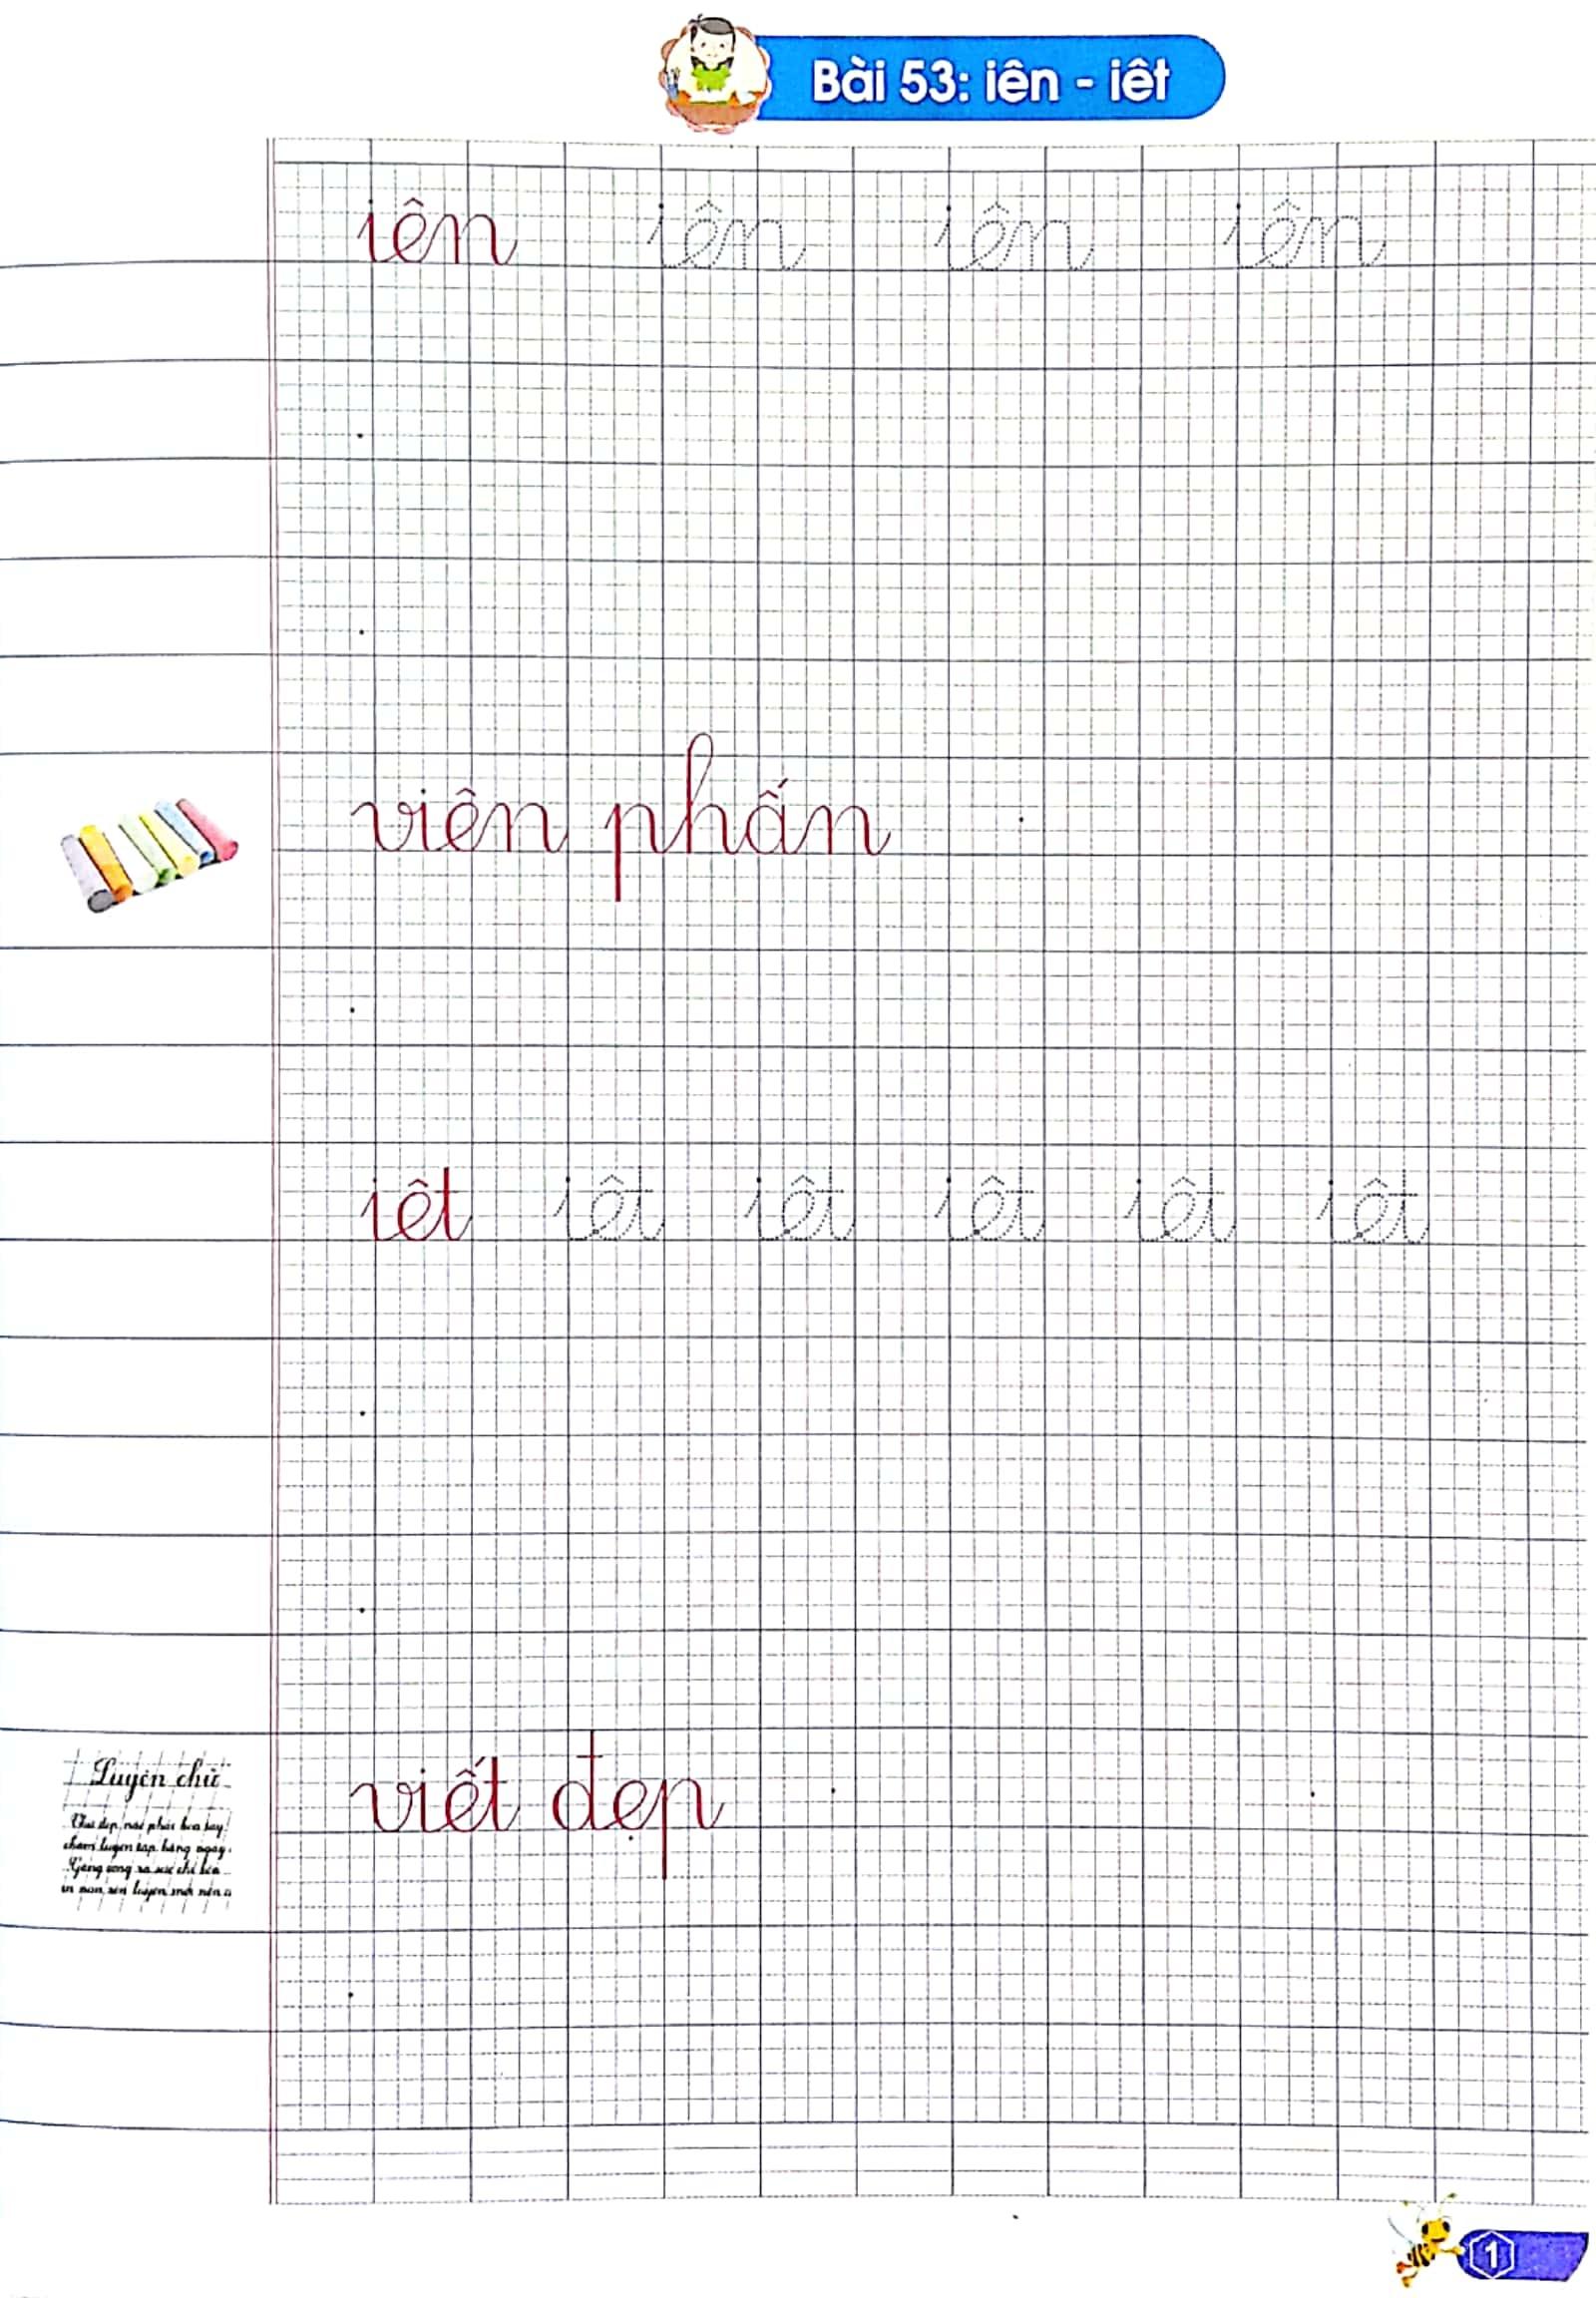 Bài 53: iên - iêt
iên iên iên iên
viên phấn
iêt iêt iêt iêt iêt iêt
Luyện chữ
viết đẹp
1